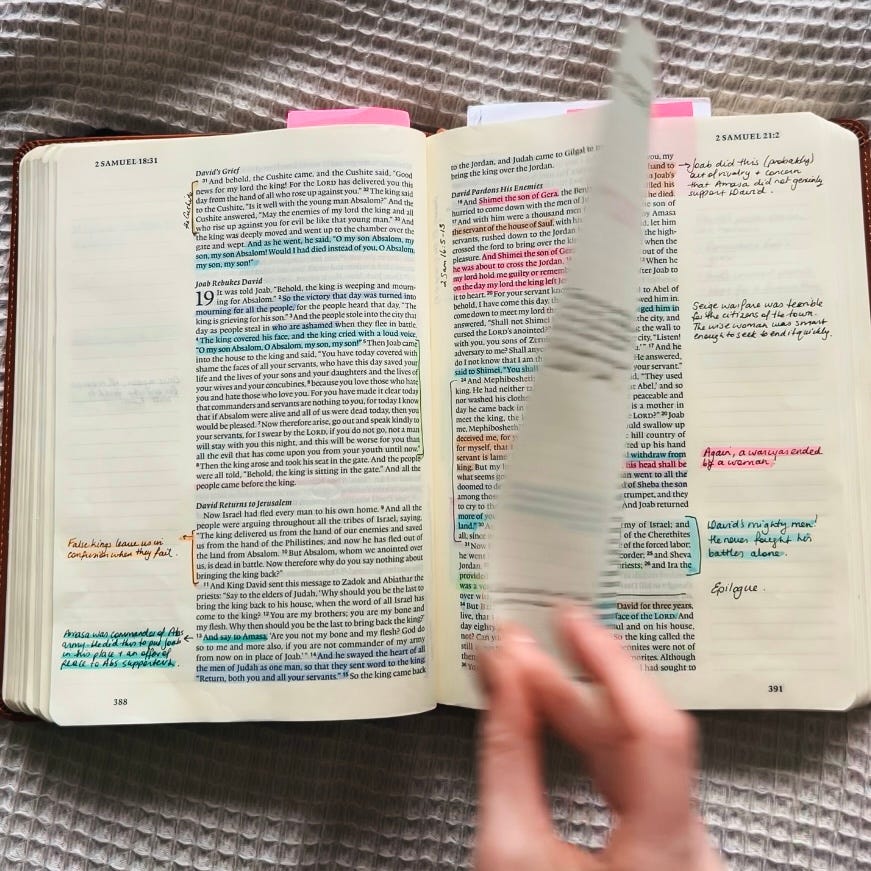 2 SAMUEL 18:31
David's Grief
31 And behold, the Cushite came, and the Cushite said, "Good
news for my lord the king! For the LORD has delivered you this
day from the hand of all who rose up against you." 32 The king said
to the Cushite, "Is it well with the young man Absalom?" And the
Cushite answered, "May the enemies of my lord the king and all
who rise up against you for evil be like that young man." 33 And
the king was deeply moved and went up to the chamber over the
gate and wept. And as he went, he said, "O my son Absalom, my
son, my son Absalom! Would I had died instead of you, O Absalom,
my son, my son!"
the Cushite
Joab Rebukes David
19 It was told Joab, "Behold, the king is weeping and mourn-
ing for Absalom." 2 So the victory that day was turned into
mourning for all the people, for the people heard that day, "The
king is grieving for his son." 3 And the people stole into the city that
day as people steal in who are ashamed when they flee in battle.
4 The king covered his face, and the king cried with a loud voice,
"O my son Absalom, O Absalom, my son, my son!" 5 Then Joab came
into the house to the king and said, "You have today covered with
shame the faces of all your servants, who have this day saved your
life and the lives of your sons and your daughters and the lives of
your wives and your concubines, 6 because you love those who hate
you and hate those who love you. For you have made it clear today
that commanders and servants are nothing to you, for today I know
that if Absalom were alive and all of us were dead today, then you
would be pleased. 7 Now therefore arise, go out and speak kindly to
your servants, for I swear by the LORD, if you do not go, not a man
will stay with you this night, and this will be worse for you than
all the evil that has come upon you from your youth until now."
8 Then the king arose and took his seat in the gate. And the people
were all told, "Behold, the king is sitting in the gate." And all the
people came before the king.
David Returns to Jerusalem
Now Israel had fled every man to his own home. 9 And all the
people were arguing throughout all the tribes of Israel, saying,
"The king delivered us from the hand of our enemies and saved
us from the hand of the Philistines, and now he has fled out of
the land from Absalom. 10 But Absalom, whom we anointed over
us, is dead in battle. Now therefore why do you say nothing about
bringing the king back?"
11 And King David sent this message to Zadok and Abiathar the
priests: "Say to the elders of Judah, 'Why should you be the last to
bring the king back to his house, when the word of all Israel has
come to the king? 12 You are my brothers; you are my bone and
my flesh. Why then should you be the last to bring back the king?'
13 And say to Amasa, 'Are you not my bone and my flesh? God do
so to me and more also, if you are not commander of my army
from now on in place of Joab.'" 14 And he swayed the heart of all
the men of Judah as one man, so that they sent word to the king,
"Return, both you and all your servants." 15 So the king came back
False kings leave us in
confusion when they fail.
Amasa was commander of Abs
army. He did this to put Joab
in his place + an offer of
peace to Abs supporters.
388
2 SAMUEL 21:2
to the Jordan, and Judah came to Gilgal to
bring the king over the Jordan.
David Pardons His Enemies
16 And Shimei the son of Gera, the Ben
hurried to come down with the men of J
17 And with him were a thousand men
the servant of the house of Saul, with his
servants, rushed down to the Jordan
crossed the ford to bring over the king
pleasure. And Shimei the son of Ger
he was about to cross the Jordan,
my lord hold me guilty or remem
on the day my lord the king left Je
it to heart. 20 For your servant kn
behold, I have come this day, th
answered, "Shall not Shimei
cursed the LORD's anointed?"
with you, you sons of Zeru
adversary to me? Shall any
do I not know that I am th
said to Shimei, "You shall
24 And Mephibosheth
king. He had neither ta
nor washed his clothes
day he came back in
meet the king, the
me, Mephibosheth
deceived me, for y
for myself, that I
servant is lame
king. But my l
what seems go
doomed to de
among those
to cry to the
more of yo
land." 30
all, since
31 Now
Jordan.
provided
was a v
over wit
34 But B
live, that
day eighty
not? Can y
still
2 Sam 16:5-13
you, my
hand to
Joab's
lled his
he died.
e son of
y Amasa
d, let him
high-
when the
out of the
When he
fter Joab to
to Abel of
owed him in
ged him in
the city, and
g the wall to
city, "Listen!
'" 17 And he
He answered,
your servant."
d, "They used
t Abel,' and so
peaceable and
is a mother in
LORD?" 20 Joab
ould swallow up
hill country of
ted up his hand
withdraw from
his head shall be
n went to all the
of Sheba the son
trumpet, and they
And Joab returned
my of Israel; and
of the Cherethites
of the forced labor;
corder; 25 and Sheva
riests; 26 and Ira the
David for three years,
face of the LORD. And
ul and on his house,
So the king called the
onites were not of
orites. Although
had sought to
Joab did this (probably)
out of rivalry + concern
that Amasa did not genuinely
support David.
Seige warfare was terrible
for the citizens of the town.
The wise woman was smart
enough to seek to end it quickly.
Again, a war was ended
by a woman.
David's mighty men!
He never fought his
battles alone.
Epilogue.
391